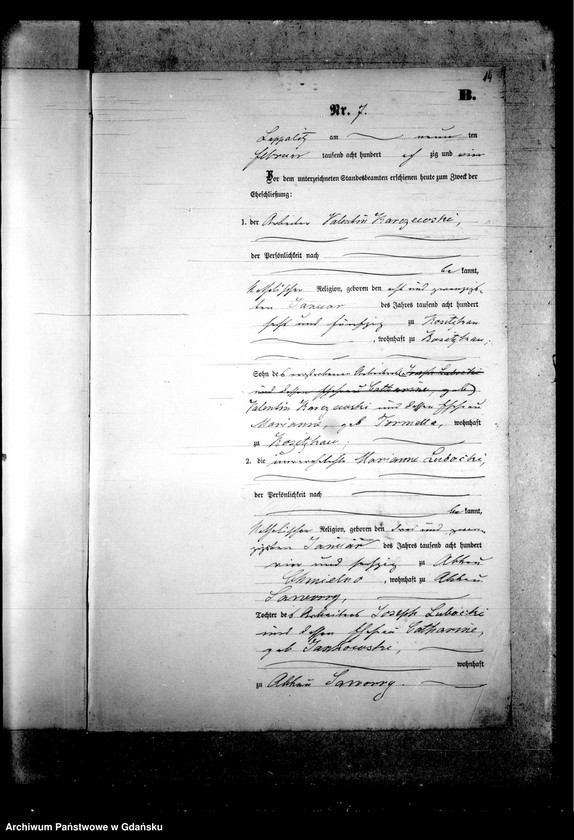 14
B.
Nr. 7.
am neun ten
Februar tausend acht hundert zig und vier
Vor dem unterzeichneten Standesbeamten erschienen heute zum Zweck der
Eheschließung:
1. der Arbeiter Valentin Karczewski,
der Persönlichkeit nach
be kannt,
katholischer Religion, geboren den
ten Januar des Jahres tausend acht hundert
sechs und fünfzig zu
, wohnhaft zu
Sohn des verstorbenen Arbeiters Joseph Lubocki
und dessen Ehefrau Catharine, geb
Valentin Karczewski und dessen Ehefrau
Marianna, geb. wohnhaft
zu
2. die unverehelichte Marianne Lubocki,
der Persönlichkeit nach
be kannt,
katholischer Religion, geboren den drei und zwan-
zigsten Januar des Jahres tausend acht hundert
vier und sechszig zu Abbau
Chmielno, wohnhaft zu Abbau
Tochter des Arbeiters Joseph Lubocki
und dessen Ehefrau Catharine,
geb. Jankowski,
wohnhaft
zu Abbau
Archiwum Państwowe w Gdańsku